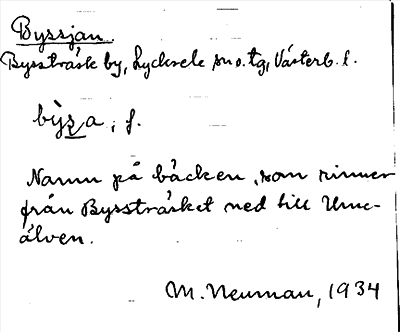 Byssjan.
Bysstråsk by, Lycksele sn o. tg, Västerb. l.
bỳsa, f.
Namn på bäcken, som rinner
från Bysstråsket ned till Ume-
älven.
M. Neuman, 1934